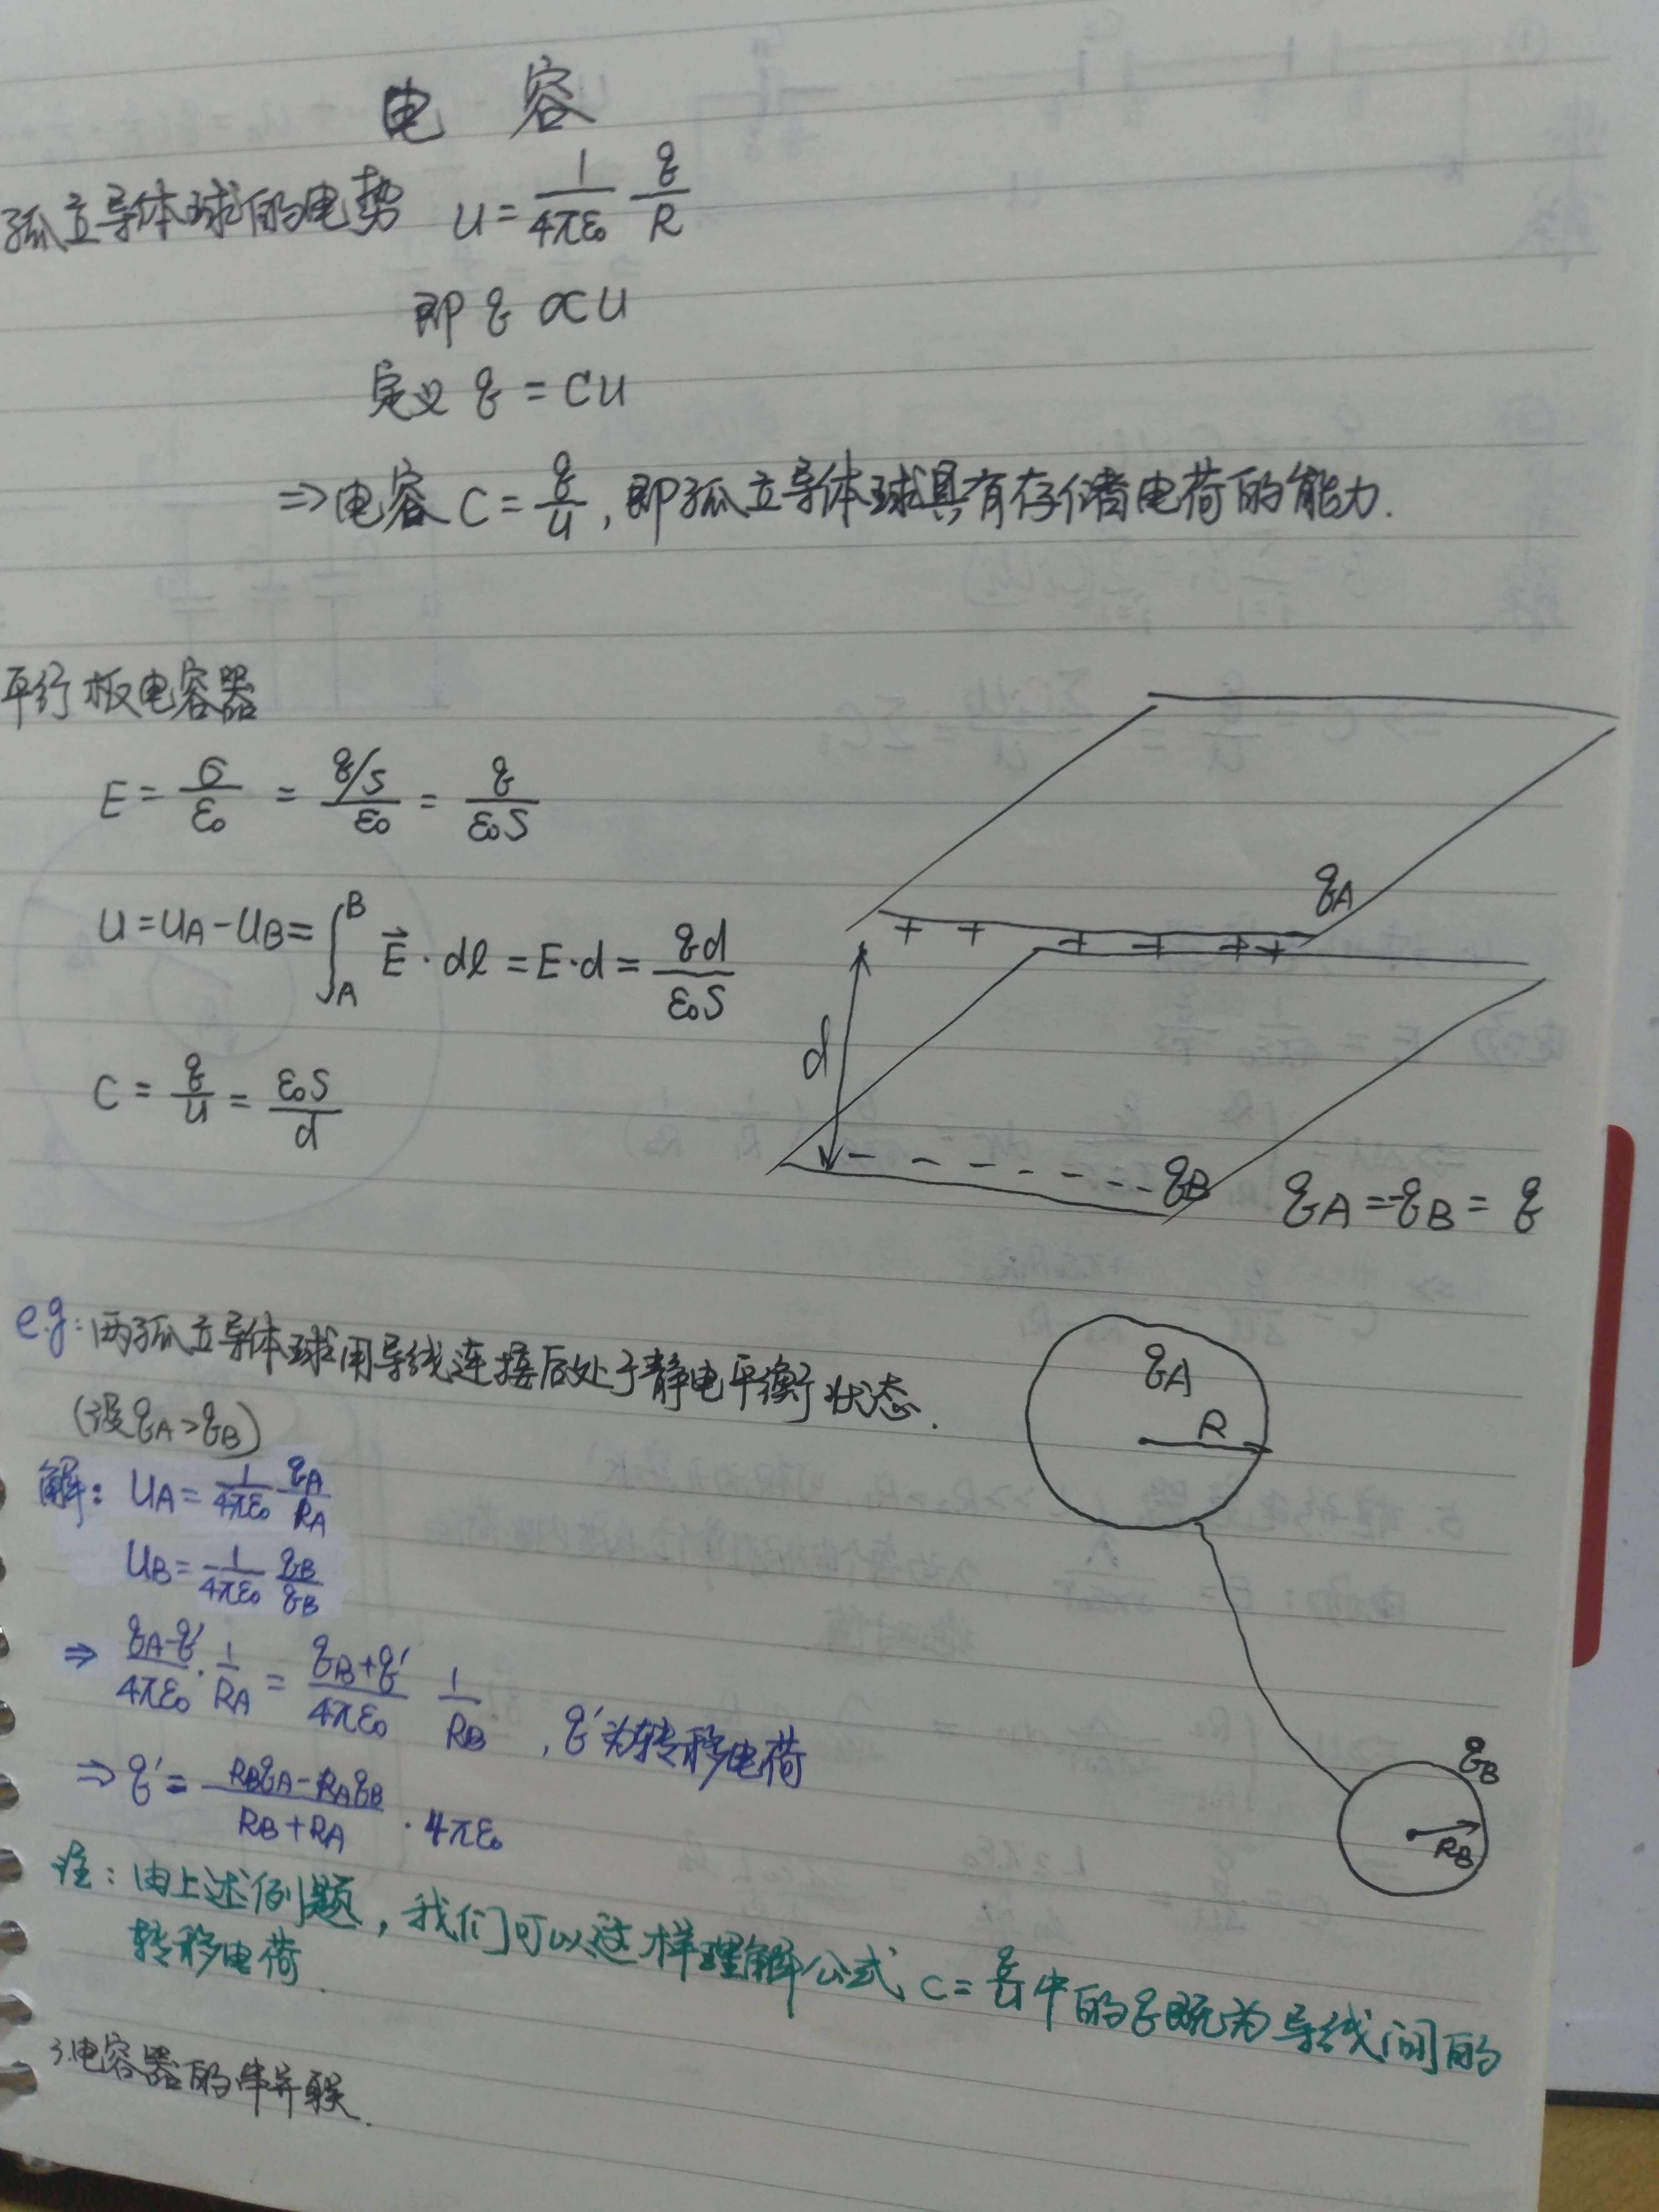 电 容
孤立导体球的电势 U = \frac{1}{4πε₀} \frac{q}{R}
即 q ∝ U
定义 q = CU
⇒ 电容 C = \frac{q}{U}, 即孤立导体球具有存储电荷的能力.
平行板电容器
E = \frac{σ}{ε₀} = \frac{q/S}{ε₀} = \frac{q}{ε₀S}
U = U_A - U_B = ∫_A^B \vec{E} · dl = E·d = \frac{qd}{ε₀S}
C = \frac{q}{U} = \frac{ε₀S}{d}
q_A
+ + + + + +
d
- - - - - - - q_B
q_A = -q_B = q
e.g: 两孤立导体球用导线连接后处于静电平衡状态.
(设 q_A > q_B)
解: U_A = \frac{1}{4πε₀} \frac{q_A}{R_A}
U_B = \frac{1}{4πε₀} \frac{q_B}{q_B}
⇒ \frac{q_A - q'}{4πε₀} · \frac{1}{R_A} = \frac{q_B + q'}{4πε₀} \frac{1}{R_B}, q'为转移电荷
⇒ q' = \frac{R_B q_A - R_A q_B}{R_B + R_A} · 4πε₀
q_A
R
q_B
R_B
注: 由上述例题, 我们可以这样理解公式 C = \frac{q}{U} 中的q既为导线间的
转移电荷.
3.电容器的串并联.